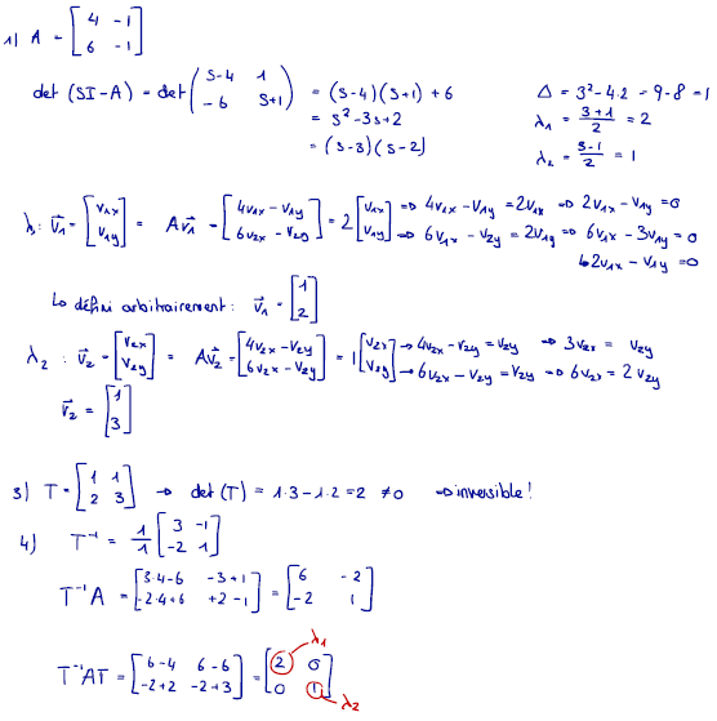 1) A = [4 -1; 6 -1]
det (SI-A) = det (S-4 1; -6 S+1) = (S-4)(S+1) + 6
= S² - 3S + 2
= (S-3)(S-2)
Δ = 3² - 4·2 = 9 - 8 = 1
λ₁ = (3+1)/2 = 2
λ₂ = (3-1)/2 = 1
λ₁: v⃗₁ = [v₁ₓ; v₁y] = Av⃗₁ = [4v₁ₓ - v₁y; 6v₂ₓ - v₂y] = 2[v₁ₓ; v₁y] ⇒ 4v₁ₓ - v₁y = 2v₁ₓ ⇒ 2v₁ₓ - v₁y = 0
⇒ 6v₁ₓ - v₂y = 2v₁y ⇒ 6v₁ₓ - 3v₁y = 0
↳ 2v₁ₓ - v₁y = 0
↳ défini arbitrairement : v⃗₁ = [1; 2]
λ₂ : v⃗₂ = [v₂ₓ; v₂y] = Av⃗₂ = [4v₂ₓ - v₂y; 6v₂ₓ - v₂y] = 1[v₂ₓ; v₂y] → 4v₂ₓ - v₂y = v₂y ⇒ 3v₂ₓ = v₂y
→ 6v₂ₓ - v₂y = v₂y ⇒ 6v₂ₓ = 2v₂y
v⃗₂ = [1; 3]
3) T = [1 1; 2 3] → det (T) = 1·3 - 1·2 = 2 ≠ 0 ⇒ inversible !
4) T⁻¹ = 1/1 [3 -1; -2 1]
T⁻¹A = [3·4-6 -3+1; -2·4+6 +2-1] = [6 -2; -2 1]
T⁻¹AT = [6-4 6-6; -2+2 -2+3] = [2 0; 0 1]
λ₁
λ₂